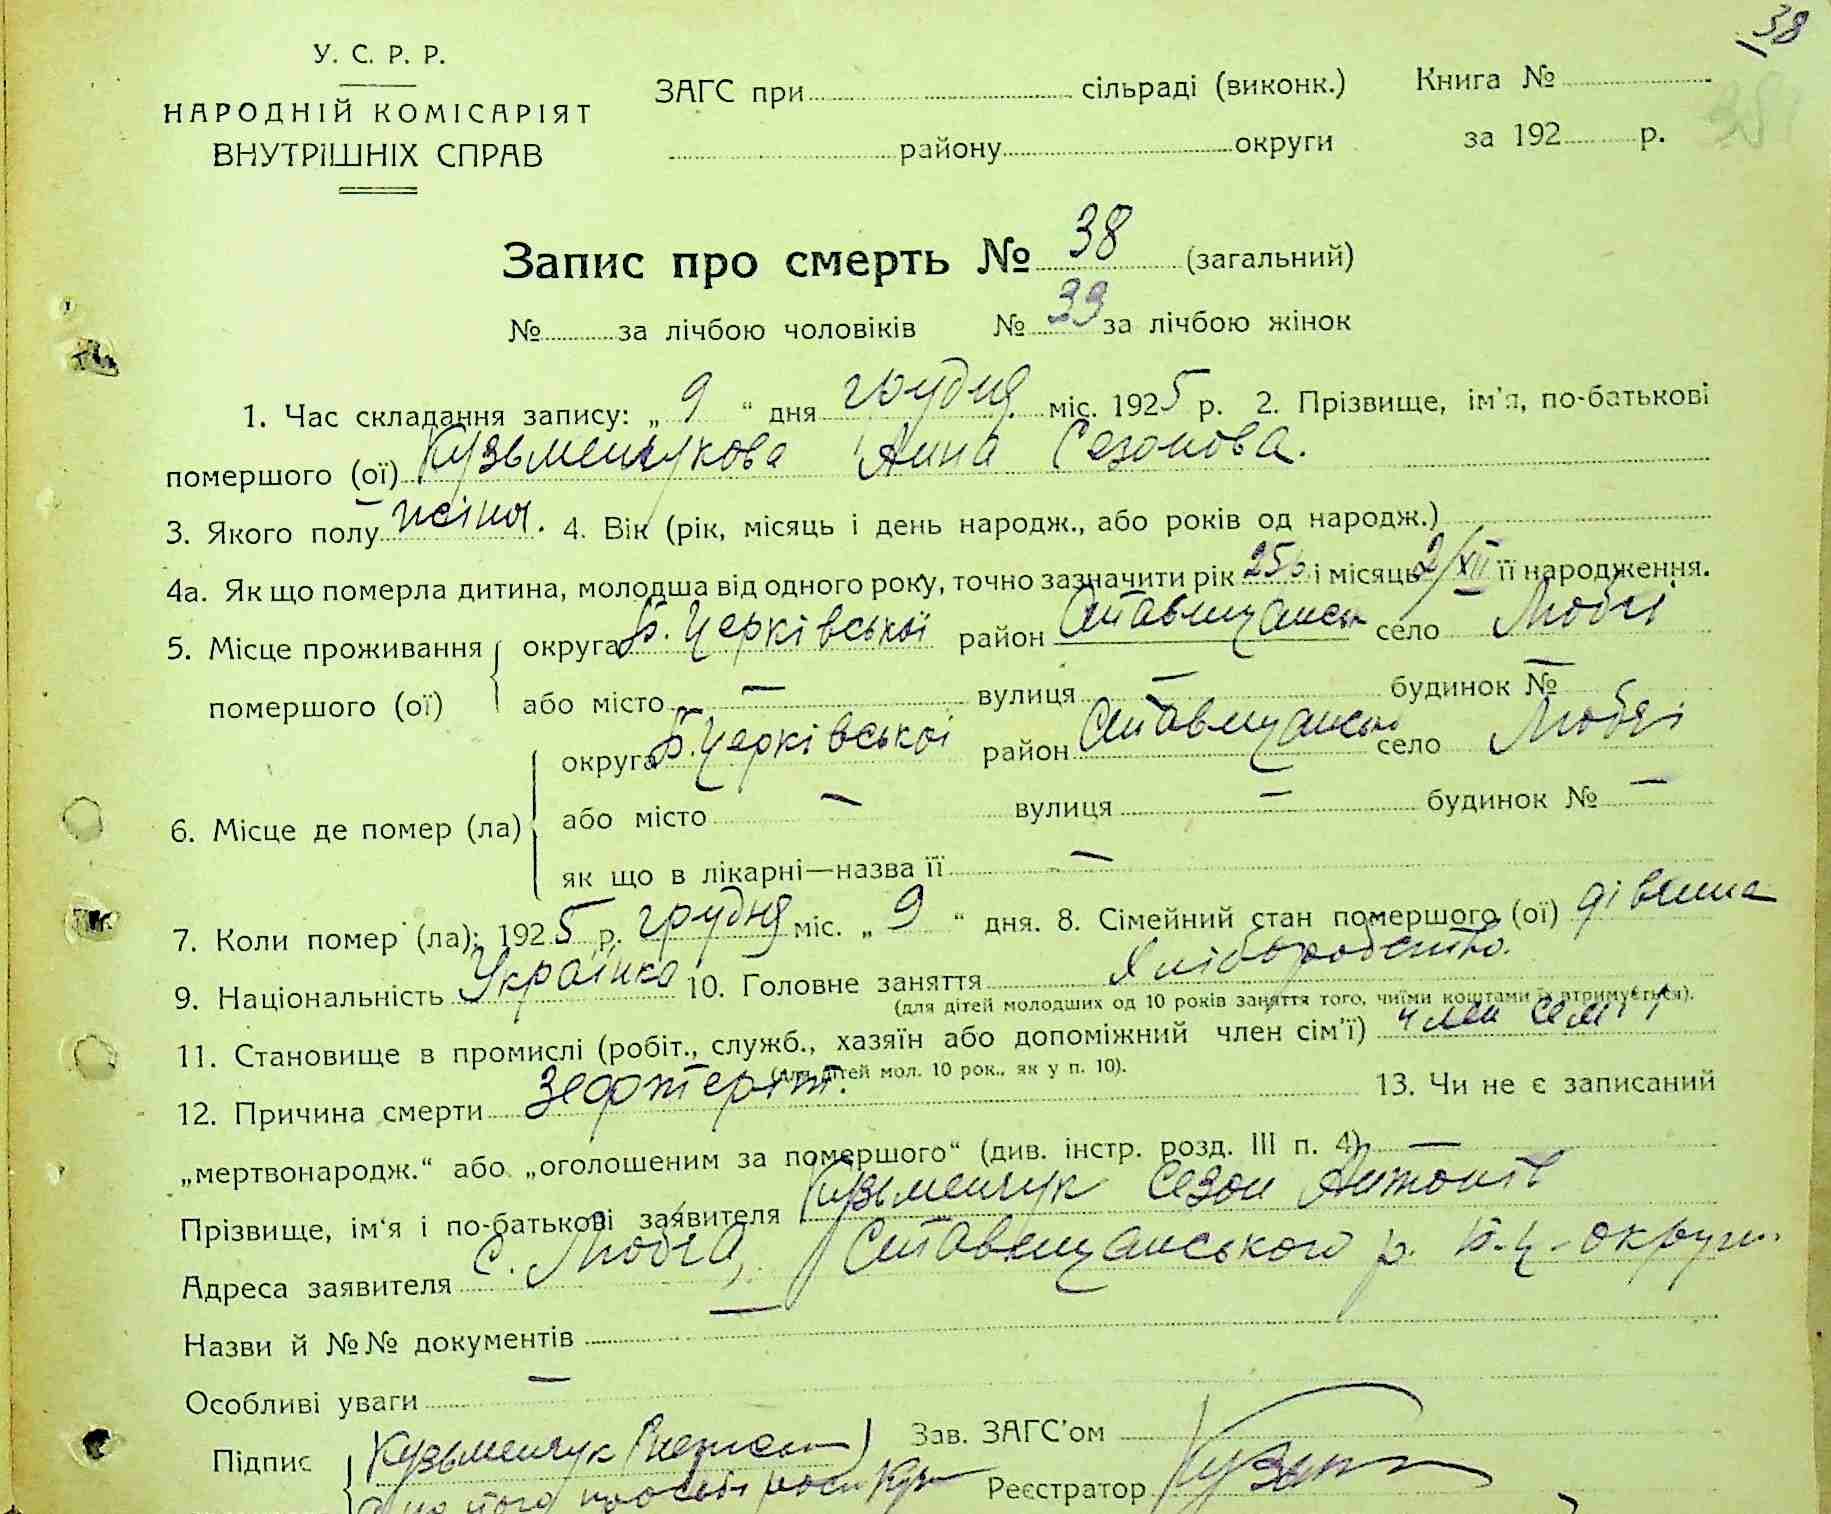 38
У. С. Р. Р.
НАРОДНІЙ КОМІСАРІЯТ
ВНУТРІШНІХ СПРАВ
ЗАГС при сільраді (виконк.) Книга №
району округи за 192 р.
Запис про смерть № 38 (загальний)
№ за лічбою чоловіків № 33 за лічбою жінок
1. Час складання запису: „ 9 “ дня грудня міс. 1925 р. 2. Прізвище, ім'я, по-батькові
помершого (ої) Кузьменчукова Анна Сезонова.
3. Якого полу жіноч. 4. Вік (рік, місяць і день народж., або років од народж.)
4а. Як що померла дитина, молодша від одного року, точно зазначити рік 25 і місяць 2/XII її народження.
5. Місце проживання округа Б. Церківської район Ставищанськ село
помершого (ої) або місто — вулиця — будинок № —
округа Б. Церківської район Ставищанськ село
6. Місце де помер (ла) або місто — вулиця — будинок № —
як що в лікарні—назва її —
7. Коли помер (ла): 1925 р. грудня міс. „ 9 “ дня. 8. Сімейний стан помершого (ої) дівчина
9. Національність Українка 10. Головне заняття Хліборобство.
(для дітей молодших од 10 років заняття того, чиїми коштами їх втримується).
11. Становище в промислі (робіт., служб., хазяїн або допоміжний член сім'ї) член семії
(для дітей мол. 10 рок., як у п. 10).
12. Причина смерти 13. Чи не є записаний
„мертвонародж.“ або „оголошеним за помершого“ (див. інстр. розд. III п. 4) —
Прізвище, ім'я і по-батькові заявителя Кузьменчук Сезон Антонів
Адреса заявителя с. Ставищанського р. Б-Ц- округи.
Назви й №№ документів —
Особливі уваги —
Підпис Кузьменчук Зав. ЗАГС'ом
Реєстратор